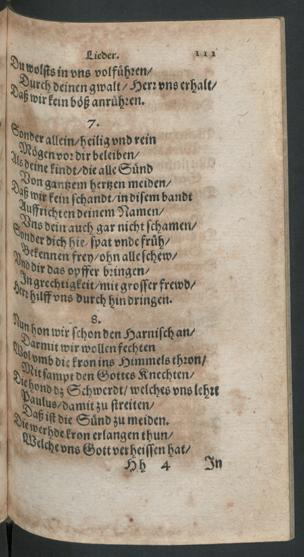 Lieder. 111
Du wolsts in vns volführen/
Durch deinen gwalt/ Herr vns erhalt/
Daß wir kein böß anrühren.
7.
Sonder allein/ heilig vnd rein
Mögen vor dir beleiben/
Als deine kindt/ die alle Sünd
Von gantzem hertzen meiden/
Daß wir kein schandt/ in disem bandt
Auffrichten deinem Namen/
Vns dein auch gar nicht schamen/
Sonder dich hie/ spat vnde früh/
Bekennen frey/ ohn alle schew/
Vnd dir das opffer bringen/
In grechtigkeit/ mit grosser frewd/
Herr hilff vns durch hin dringen.
8.
Nun hon wir schon den Harnisch an/
Darmit wir wollen fechten
Wol vmb die kron ins Himmels thron/
Mit sampt den Gottes Knechten/
Die hond dz Schwerdt/ welches vns lehrt
Paulus/ damit zu streiten/
Daß ist die Sünd zu meiden.
Die werhde kron erlangen thun/
Welche vns Gott verheissen hat/
Hh 4 In